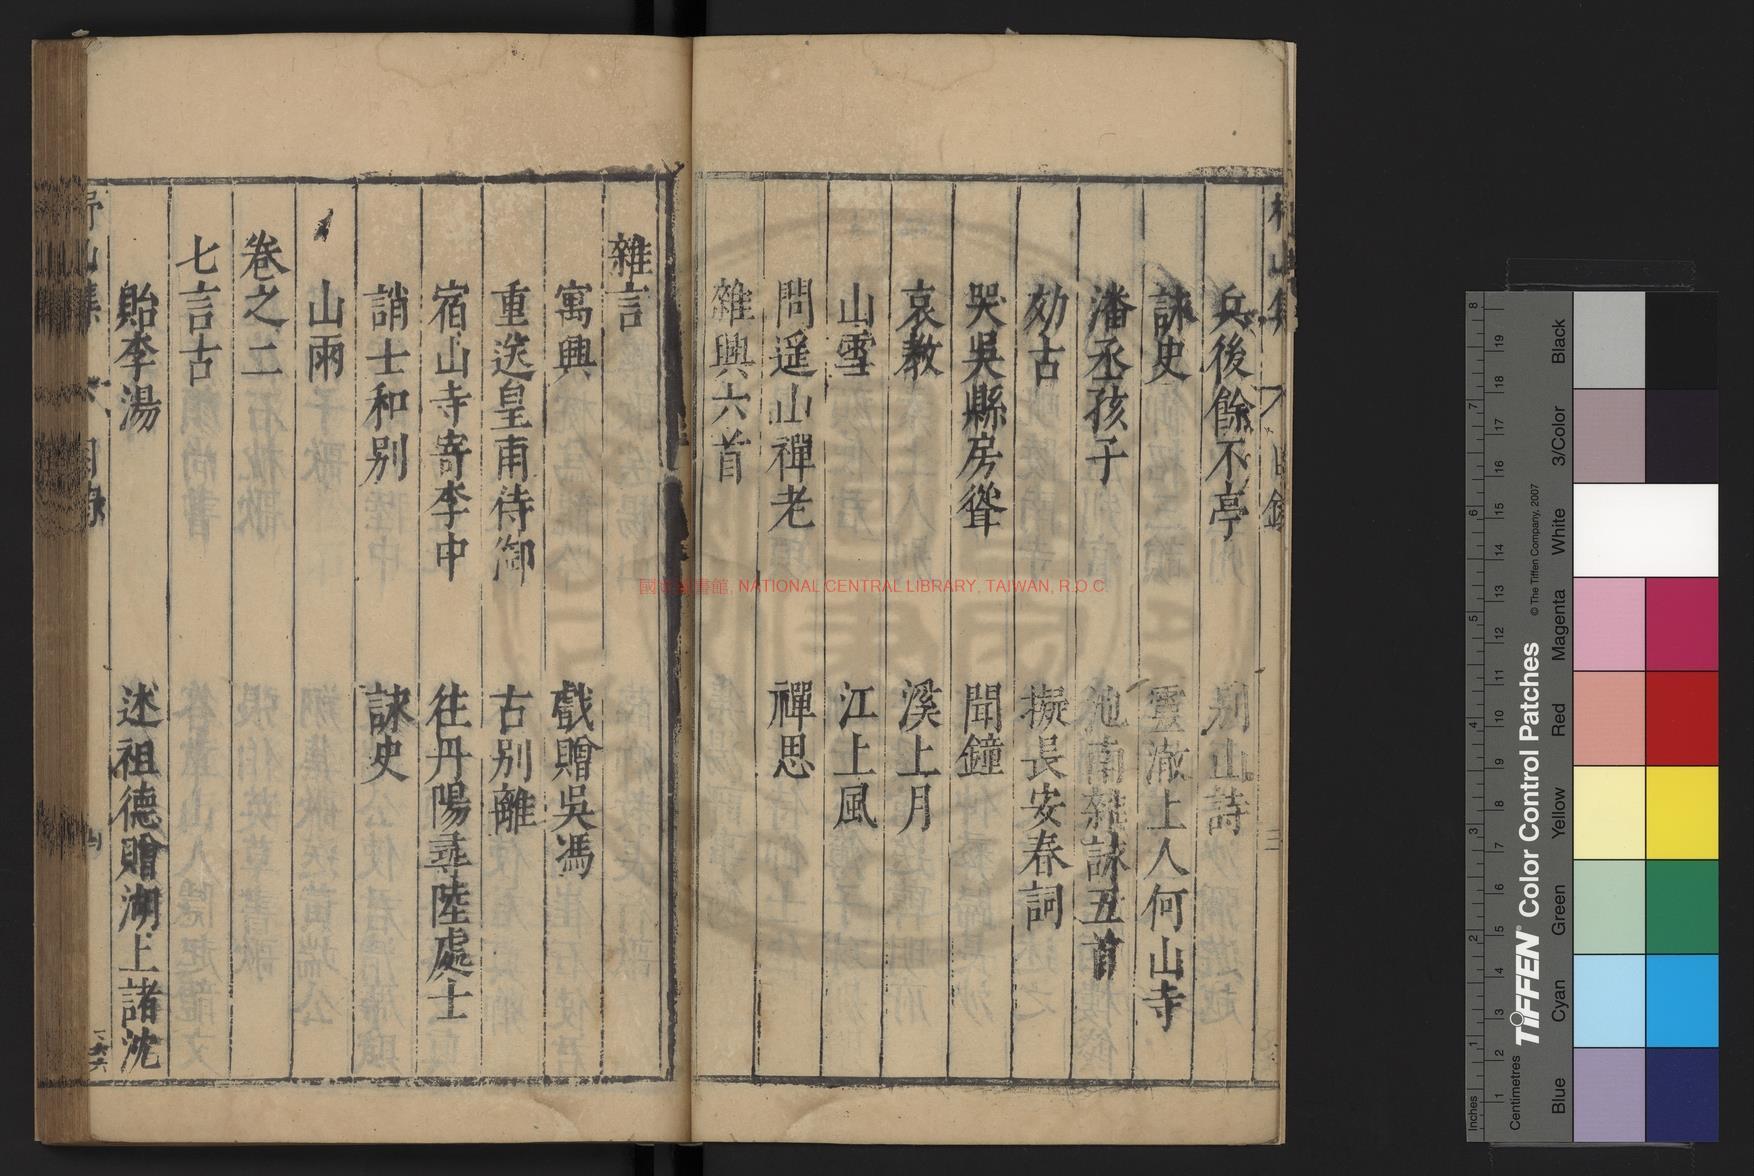 兵後餘不亭 别山詩
詠史 靈澈上人何山寺
潘丞孩子 池南雜詠五首
効古 擬長安春詞
哭吳縣房聳 聞鐘
哀教 溪上月
山雪 江上風
問遥山禪老 禪思
雜興六首
雜言
寓興 戲贈吳馮
重送皇甫待御 古别離
宿山寺寄李中 往丹陽尋陸處士
誚士和别 詠史
山雨
卷之二
七言古
貽李湯 述祖德贈湖上諸沈
國家圖書館, NATIONAL CENTRAL LIBRARY, TAIWAN, R.O.C
TIFFEN® Color Control Patches
© The Tiffen Company, 2007
Inches
Centimetres
Blue
Cyan
Green
Yellow
Red
Magenta
White
3/Color
Black